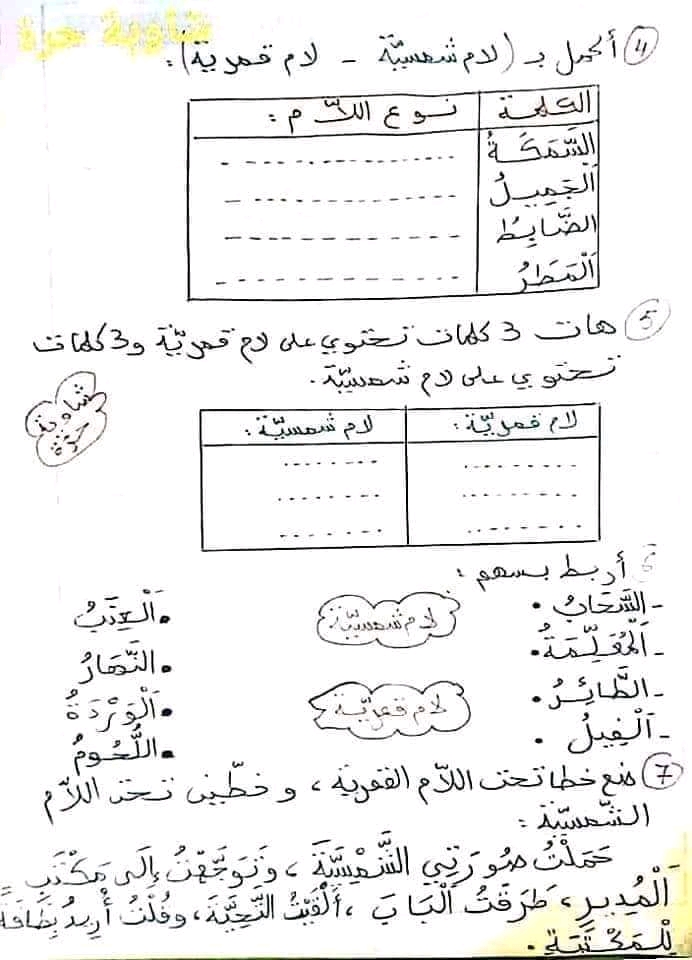 شاوية حرة
4 أكمل بـ (لام شمسيّة - لام قمرية):
الكلمة | نوع اللاّم:
السَّمَكَةُ
اَلْجَمِيلُ
الضَّابِطُ
اَلْمَطَرُ
5 هات 3 كلمات تحتوي على لام قمريّة و3 كلمات
تحتوي على لام شمسيّة.
شاوية
حرّة
لام قمريّة: | لام شمسيّة:
6 أربط بسهم:
- السَّحَابُ • لام شمسيّة • اَلْعِنَبُ
- اَلْمُعَلِّمَةُ • • النَّهَارُ
- الطَّائِرُ • لام قمريّة • اَلْوَرْدَةُ
- اَلْفِيلُ • • اللُّحُومُ
7 ضع خطا تحت اللاّم القمرية، و خطّين تحت اللاّم
الشّمسيّة:
حَمَلْتُ صُورَتِي الشَّمْسِيَّةَ، وَتَوَجَّهْتُ إِلَى مَكْتَبِ
اَلْمُدِيرِ، طَرَقْتُ اَلْبَابَ، أَلْقَيْتُ التَّحِيَّةَ، وقُلْتُ أُرِيدُ بِطَاقَةً
لِلْمَكْتَبَةِ.